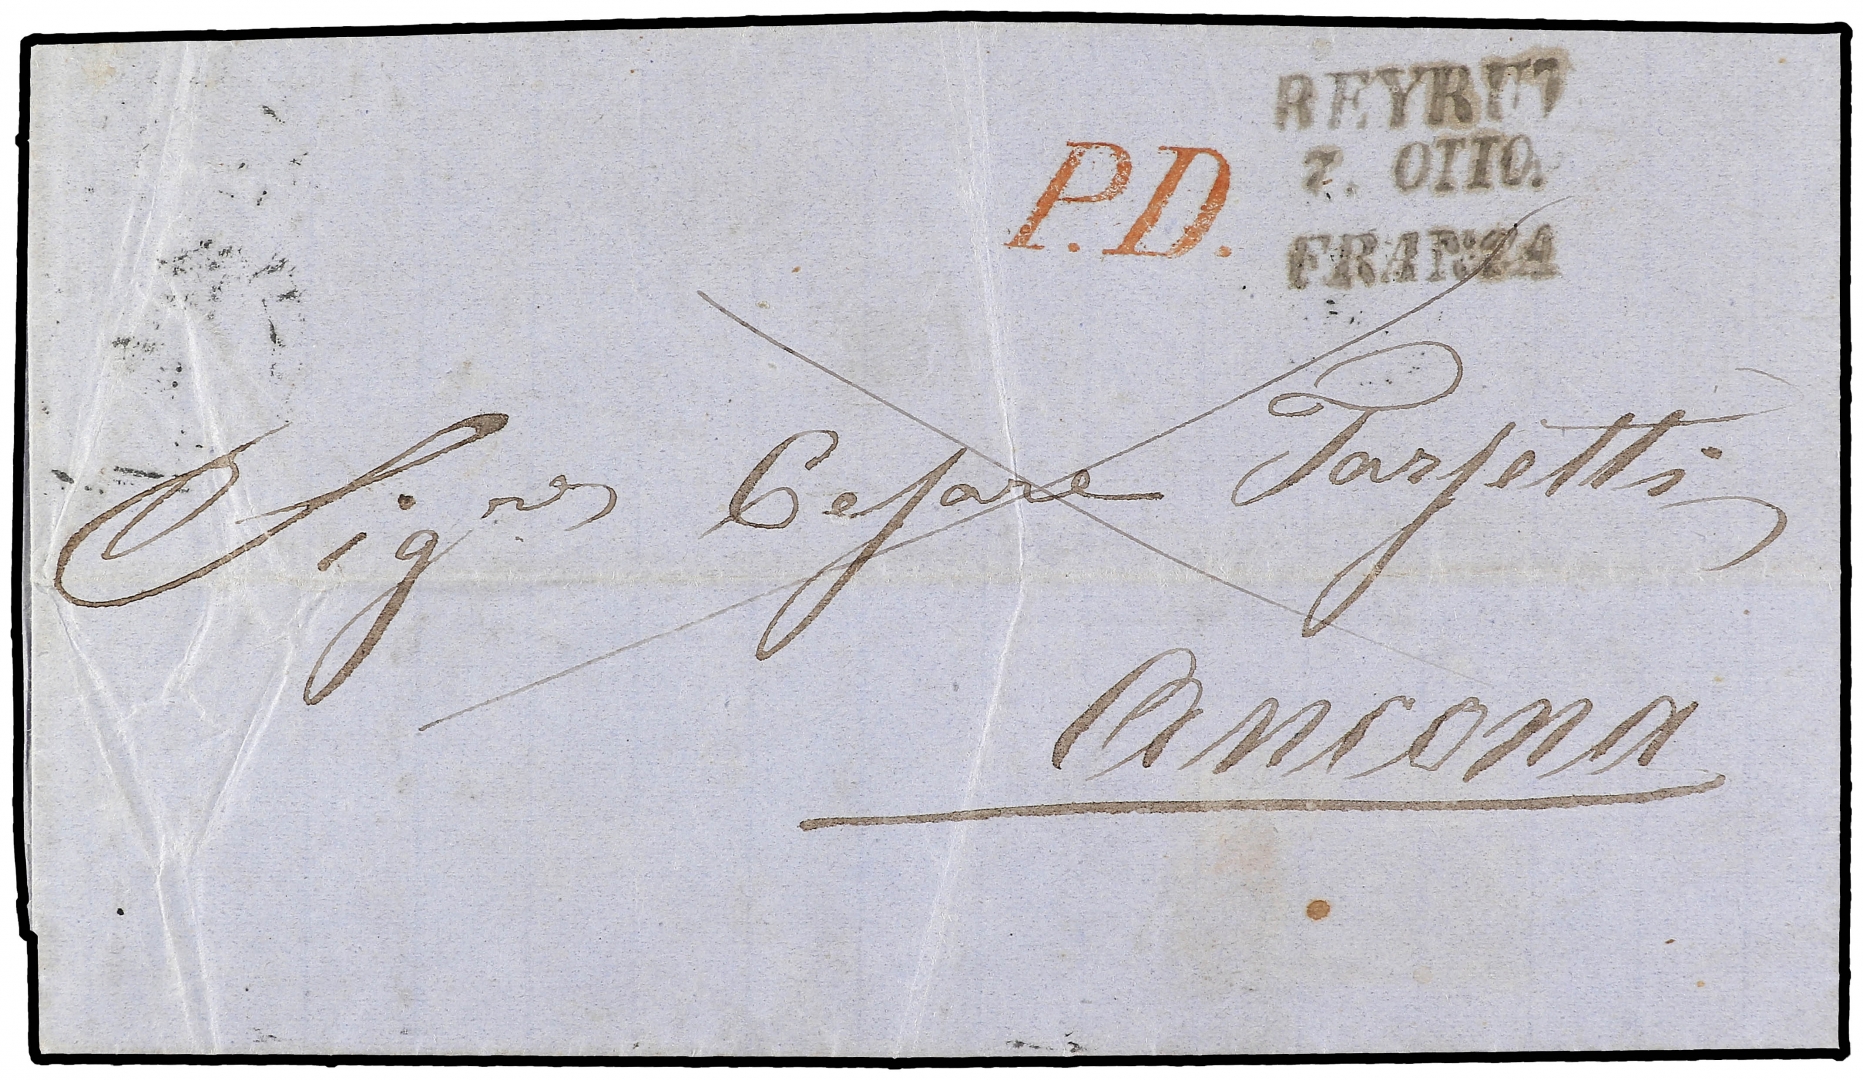 BEYRUT
7. OTTO.
P.D.
FRANCA
Sigre Cesare Tarsetti
Ancona